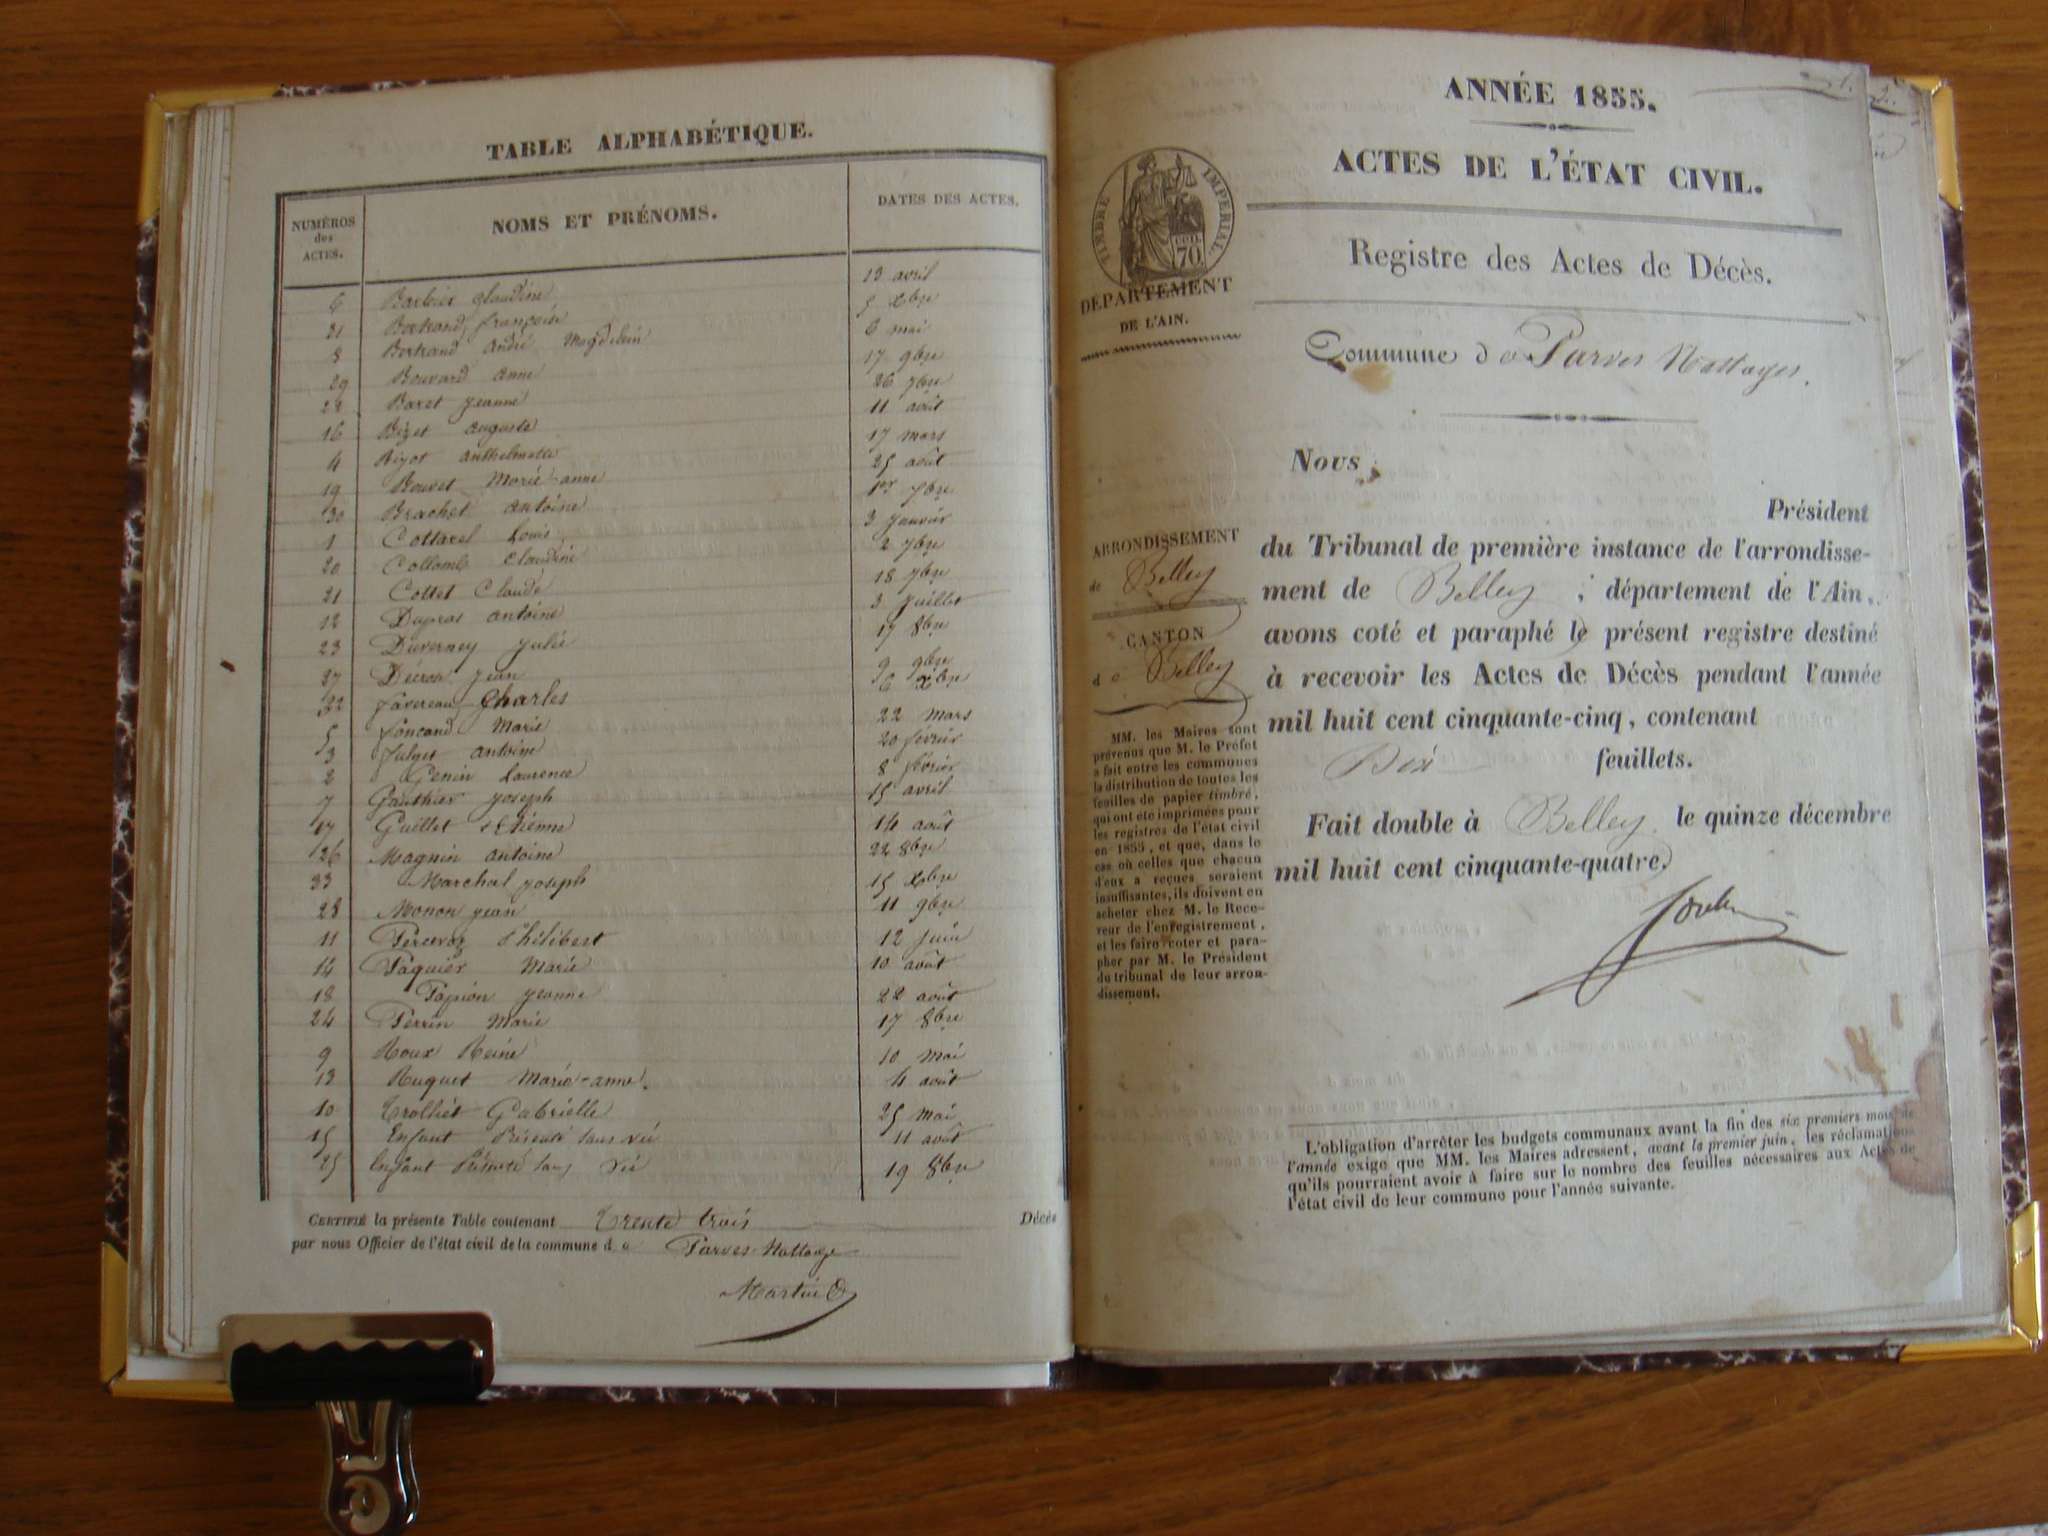 TABLE ALPHABÉTIQUE.
NUMÉROS des ACTES. NOMS ET PRÉNOMS. DATES DES ACTES.
6 Barbier Claudine 13 avril
31 Bertrand françois 5 Xbre
8 Bertrand André Magdelein 6 mai
29 Bouvard anne 17 9bre
22 Baret Jeanne 26 7bre
16 Bizet auguste 11 août
4 Bizot anthelmette 17 mars
19 Bouvet Marie-anne 25 août
30 Brachet antoine 1er
1 Cottarel Louis 3 Janvier
20 Collomb Claudine 2 7bre
21 Cottet Claude 18 7bre
12 Dupras antoine 3 Juillet
23 Duverney Julie 17 8bre
27 Jean 9 9bre
32 favereau Charles 6 Xbre
5 Marie 22 mars
3 antoine 20 février
2 Genin Laurence 8 février
7 Gauthier Joseph 15 avril
17 Guillet Etienne 14 août
26 Magnin antoine 22 8bre
33 Marchal Joseph 15 Xbre
28 Monon Jean 11 9bre
11 Philibert 12 Juin
14 Paquier Marie 10 août
18 Papion Jeanne 22 août
24 Perrin Marie 17 8bre
9 Roux Reine 10 mai
13 Ruquet Marie-anne. 4 août
10 Trolliet Gabrielle 25 mai
15 Enfant Présenté sans vie 11 août
25 Enfant Présenté sans vie 19 8bre
CERTIFIÉ la présente Table contenant Trente trois Décès
par nous Officier de l'état civil de la commune de Parves-Nattage
Martin
ANNÉE 1855.
ACTES DE L'ÉTAT CIVIL.
TIMBRE IMPERIAL.
70
DÉPARTEMENT
DE L'AIN.
Registre des Actes de Décès.
Commune de Parves Nattages.
Nous,
Président
du Tribunal de première instance de l'arrondisse-
ment de Belley, département de l'Ain,
avons coté et paraphé le présent registre destiné
à recevoir les Actes de Décès pendant l'année
mil huit cent cinquante-cinq, contenant
Dix feuillets.
Fait double à Belley le quinze décembre
mil huit cent cinquante-quatre.
ARRONDISSEMENT
de Belley
CANTON
de Belley
MM. les Maires sont
prévenus que M. le Préfet
a fait entre les communes
la distribution de toutes les
feuilles de papier timbré,
qui ont été imprimées pour
les registres de l'état civil
en 1855, et que, dans le
cas où celles que chacun
d'eux a reçues seraient
insuffisantes, ils doivent en
acheter chez M. le Rece-
veur de l'enregistrement,
et les faire coter et para-
pher par M. le Président
du tribunal de leur arron-
dissement.
L'obligation d'arrêter les budgets communaux avant la fin des six premiers mois de
l'année exige que MM. les Maires adressent, avant le premier juin, les réclamations
qu'ils pourraient avoir à faire sur le nombre des feuilles nécessaires aux Actes de
l'état civil de leur commune pour l'année suivante.